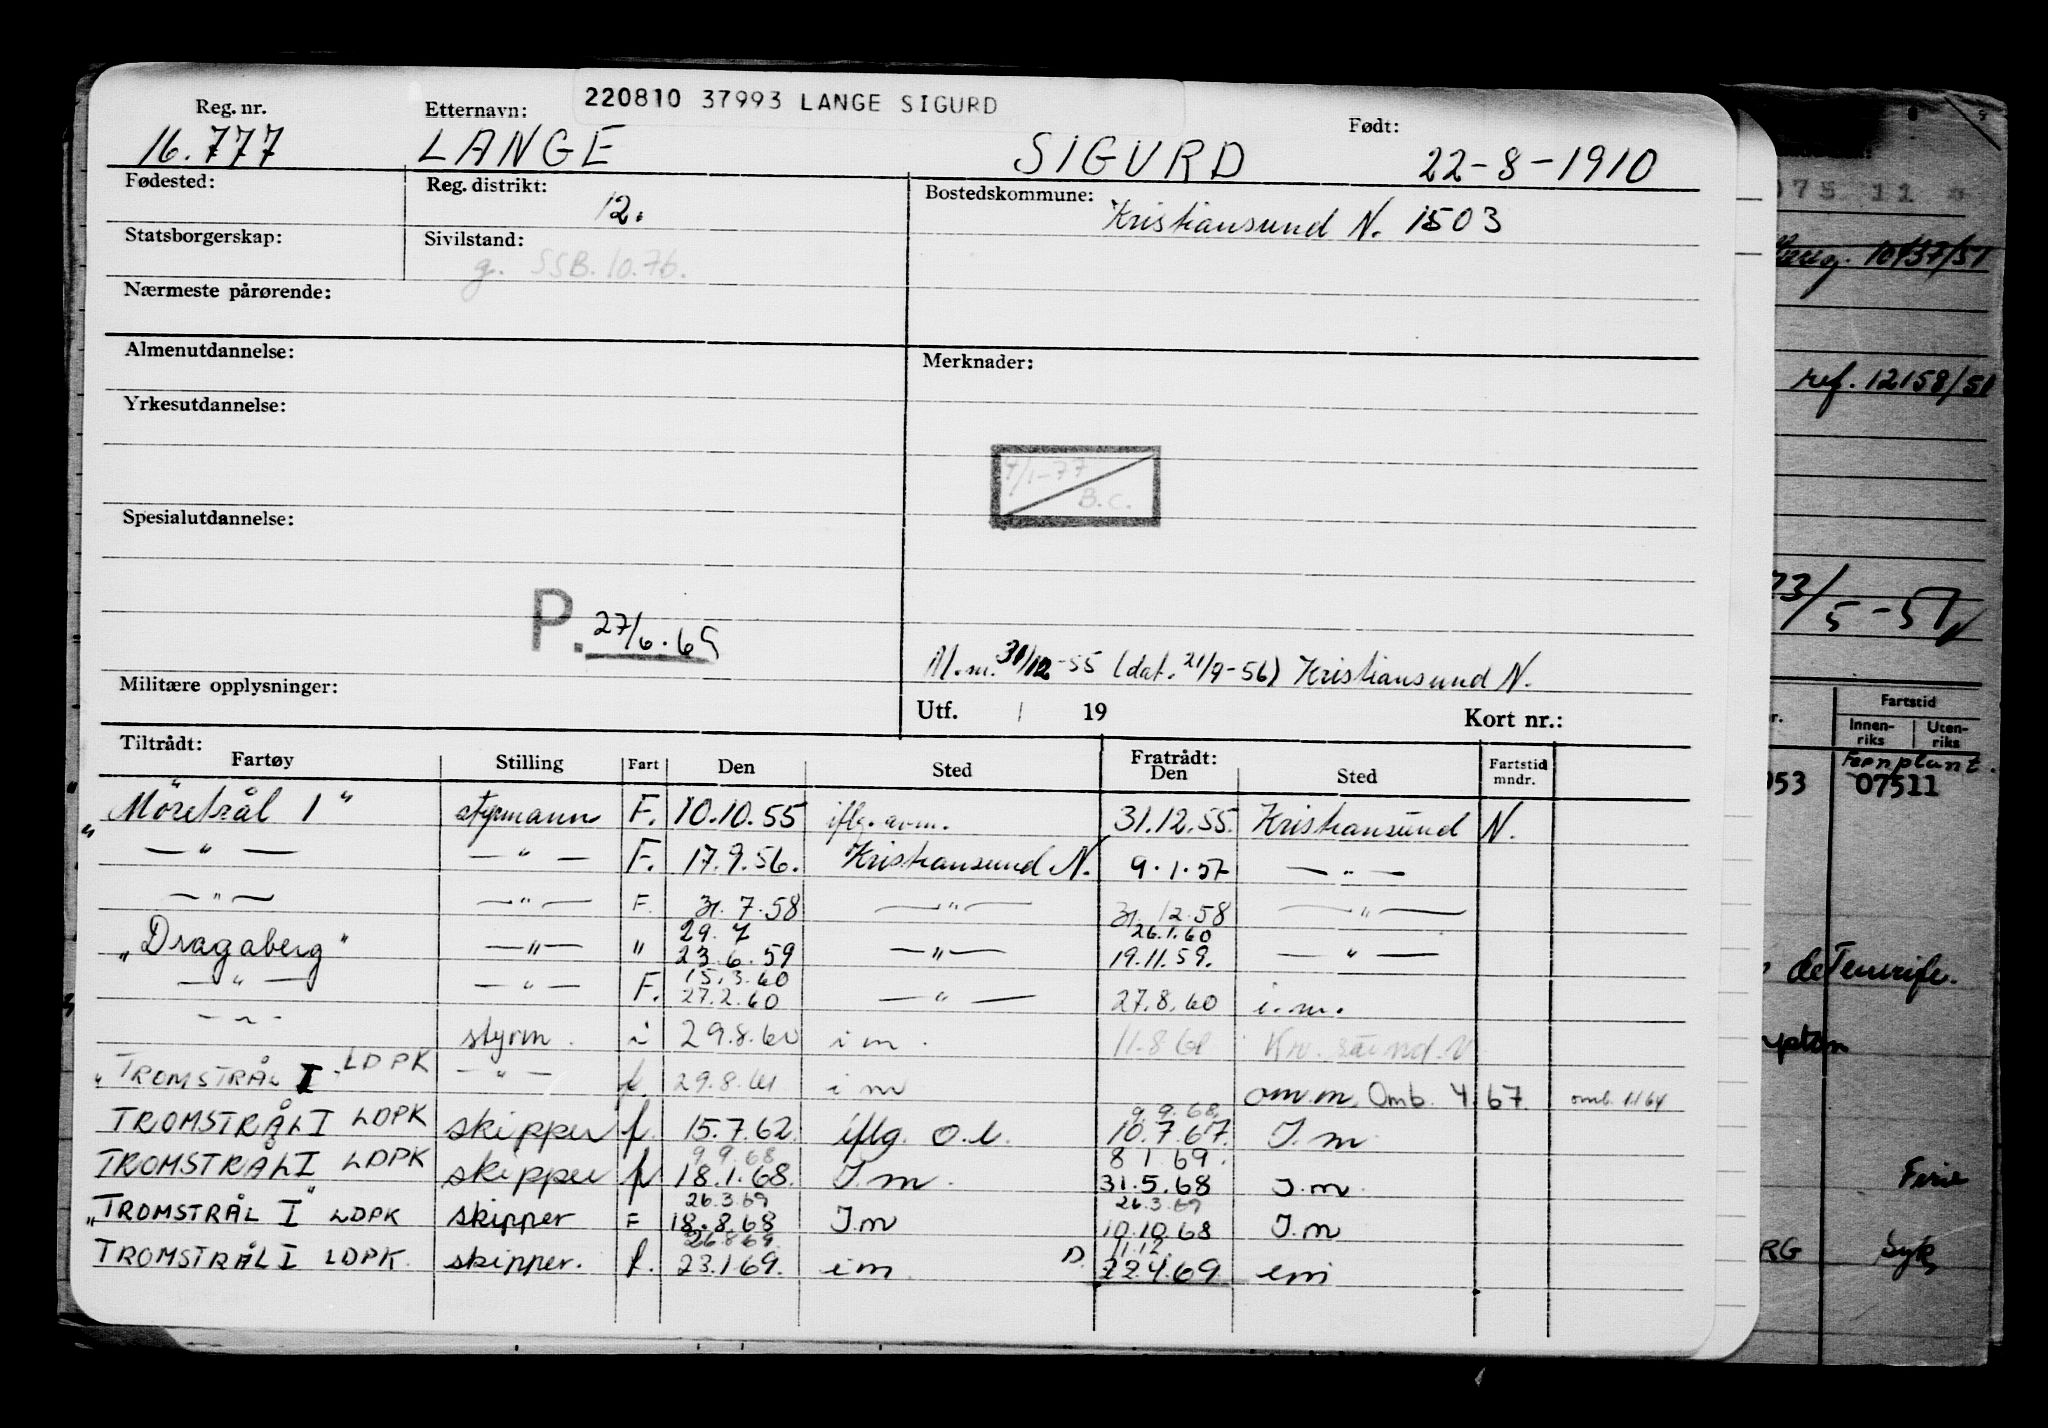 220810 37993 LANGE SIGURD
Reg. nr. Etternavn: Født:
16.777 LANGE SIGURD 22-8-1910
Fødested: Reg. distrikt: 12. Bostedskommune: Kristiansund N. 1503
Statsborgerskap: Sivilstand:
g. SSB.10.76.
Nærmeste pårørende:
Almenutdannelse: Merknader:
Yrkesutdannelse:
7/1-77
B.C.
Spesialutdannelse:
P. 27/6.65
A/.m. 31/12-55 (dat. 21/9-56) Kristiansund N.
Militære opplysninger:
Utf. / 19 Kort nr.:
Tiltrådt: Fratrådt:
Fartøy Stilling Fart Den Sted Den Sted Fartstid mndr.
"Möretrål 1" styrmann F. 10.10.55 iflg. avm. 31.12.55. Kristiansund N.
— " — — " — F. 17.9.56. Kristiansund N. 9.1.57 — " —
— " — — " — F. 31.7.58 — " — 31.12.58 — " —
29.7 26.1.60
"Dragaberg" — " — " 23.6.59 — " — 19.11.59. — " —
15.3.60
— " — — " — F. 27.2.60 — " — 27.8.60 i.m.
— " — styrm. " 29.8.60 i m. 11.8.61 Kr. sund. N
"TROMSTRÅL I" LDPK — " — f. 29.8.61 i m omm. Omb. 4.67. omb. 1164
9.9.68
TROMSTRÅL I LDPK skipper f. 15.7.62. iflg. o.l. 10.7.67. I.m
9.9.68 8 1 69.
TROMSTRÅL I LDPK skipper f 18.1.68. I.m. 31.5.68 I.m.
26.3.69 26.3.69
"TROMSTRÅL I" LDPK skipper F 18.8.68 I.m 10.10.68 I.m
26.8.69 11.12.
TROMSTRÅL I LDPK. skipper. f. 23.1.69. i m. D. 22.4.69 i m
075 11
10437/51
ref. 12158/51
/5-57
Fartstid
Innenriks Utenriks
053 07511
de Tenerife.
Ferie
RG Syk